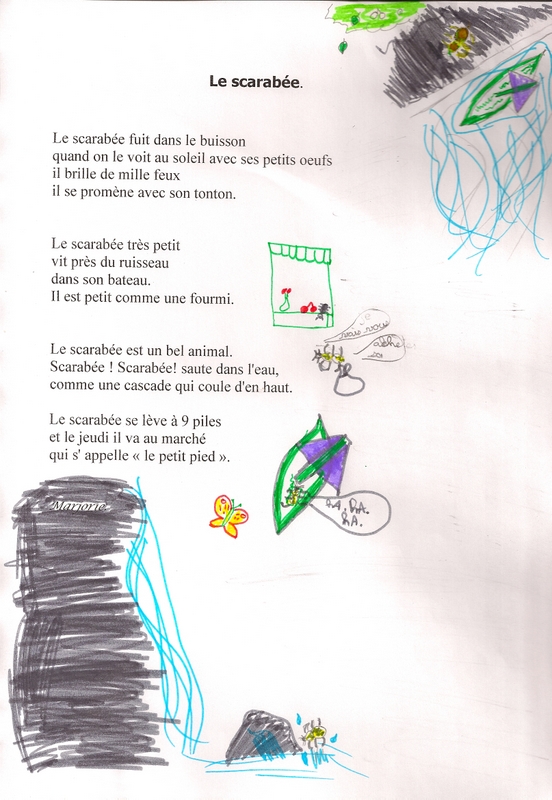 Le scarabée.
Le scarabée fuit dans le buisson
quand on le voit au soleil avec ses petits oeufs
il brille de mille feux
il se promène avec son tonton.
Le scarabée très petit
vit près du ruisseau
dans son bateau.
Il est petit comme une fourmi.
Le scarabée est un bel animal.
Scarabée ! Scarabée! saute dans l'eau,
comme une cascade qui coule d'en haut.
Le scarabée se lève à 9 piles
et le jeudi il va au marché
qui s' appelle « le petit pied ».
Marjorie